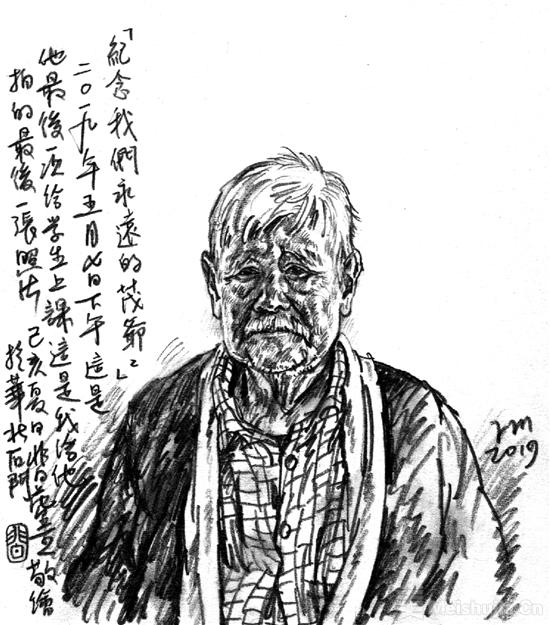 「紀念我們永遠的茂爺」
二〇一九年五月七日下午這是
他最後一次给学生上課這是我给他
拍的最後一張照片 己亥夏日 敬繪
於華北石門
2019
Meishu.Cn